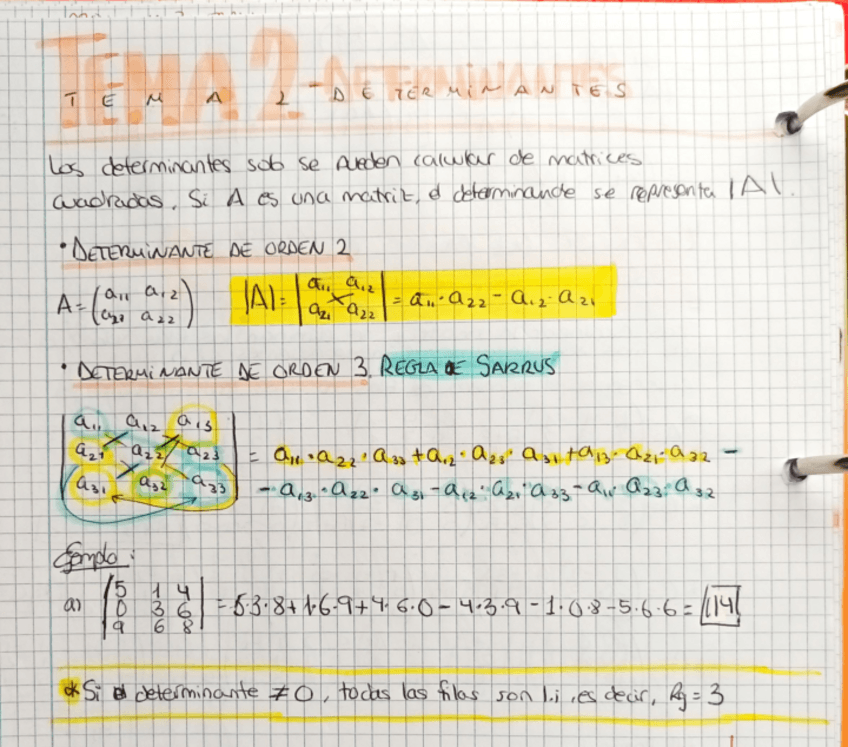 TEMA 2 - DETERMINANTES
Los determinantes solo se pueden calcular de matrices
cuadradas. Si A es una matriz, el determinande se representa |A|.
• DETERMINANTE DE ORDEN 2
A = (a₁₁ a₁₂ |A| = |a₁₁ a₁₂| = a₁₁·a₂₂ - a₁₂·a₂₁
a₂₁ a₂₂) a₂₁ a₂₂
• DETERMINANTE DE ORDEN 3. REGLA DE SARRUS
a₁₁ a₁₂ a₁₃
a₂₁ a₂₂ a₂₃ = a₁₁·a₂₂·a₃₃ + a₁₂·a₂₃·a₃₁ + a₁₃·a₂₁·a₃₂ -
a₃₁ a₃₂ a₃₃ - a₁₃·a₂₂·a₃₁ - a₁₂·a₂₁·a₃₃ - a₁₁·a₂₃·a₃₂
Ejemplo:
5 1 4
a) 0 3 6 = 5·3·8 + 1·6·9 + 4·6·0 - 4·3·9 - 1·0·8 - 5·6·6 = 114
9 6 8
* Si el determinante ≠ 0, todas las filas son l.i, es decir, Rg = 3